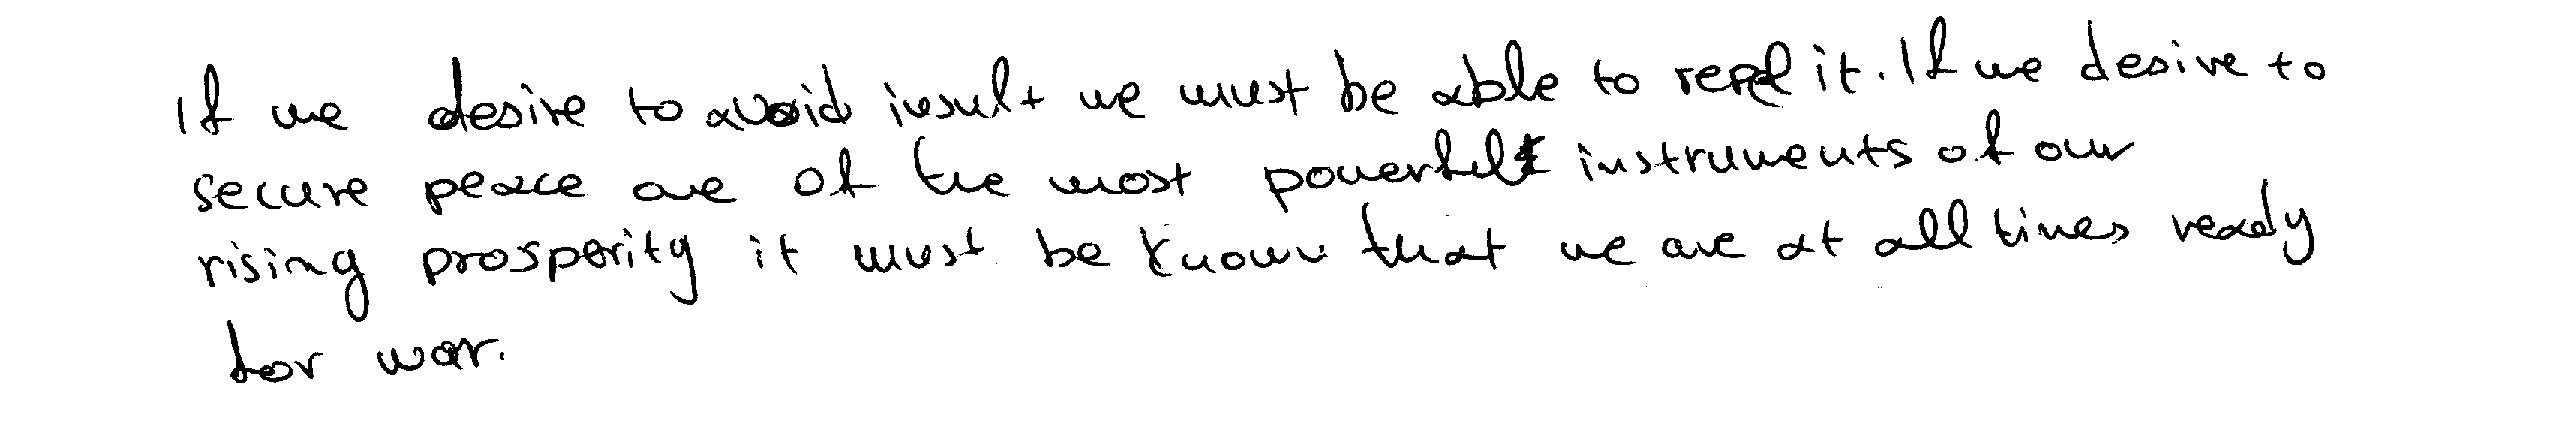 If we desire to avoid insult we must be able to repel it. If we desire to
secure peace one of the most powerful instruments of our
rising prosperity it must be known that we are at all times ready
for war.